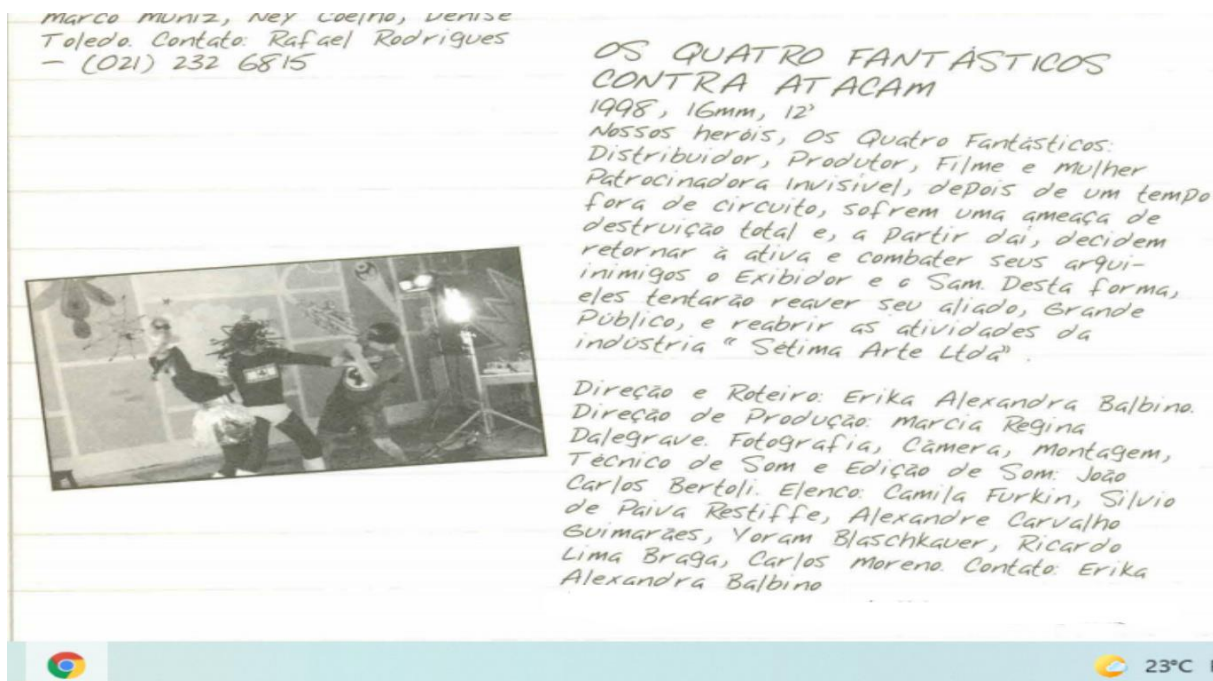 Marco Muniz, Ney Coelho, Denise
Toledo. Contato: Rafael Rodrigues
– (021) 232 6815
OS QUATRO FANTÁSTICOS
CONTRA ATACAM
1998, 16mm, 12'
Nossos heróis, Os Quatro Fantásticos:
Distribuidor, Produtor, Filme e Mulher
Patrocinadora Invisível, depois de um tempo
fora de circuito, sofrem uma ameaça de
destruição total e, a partir daí, decidem
retornar à ativa e combater seus arqui-
inimigos o Exibidor e o Sam. Desta forma,
eles tentarão reaver seu aliado, Grande
Público, e reabrir as atividades da
indústria " Sétima Arte Ltda" .
Direção e Roteiro: Erika Alexandra Balbino.
Direção de Produção: Marcia Regina
Dalegrave. Fotografia, Câmera, Montagem,
Técnico de Som e Edição de Som: João
Carlos Bertoli. Elenco: Camila Furkin, Silvio
de Paiva Restiffe, Alexandre Carvalho
Guimarães, Yoram Blaschkauer, Ricardo
Lima Braga, Carlos Moreno. Contato: Erika
Alexandra Balbino
23°C